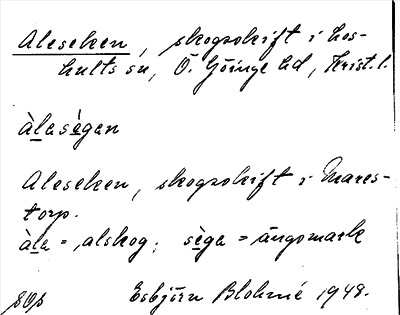 Aleseken, skogsskift i Los-
hults sn, Ö. Göinge hd, Krist. l.
àlasègan
Aleseken, skogsskift i Mares-
torp.
àla = ,alskog; sèga = ängsmark
Esbjörn Blohmé 1948.